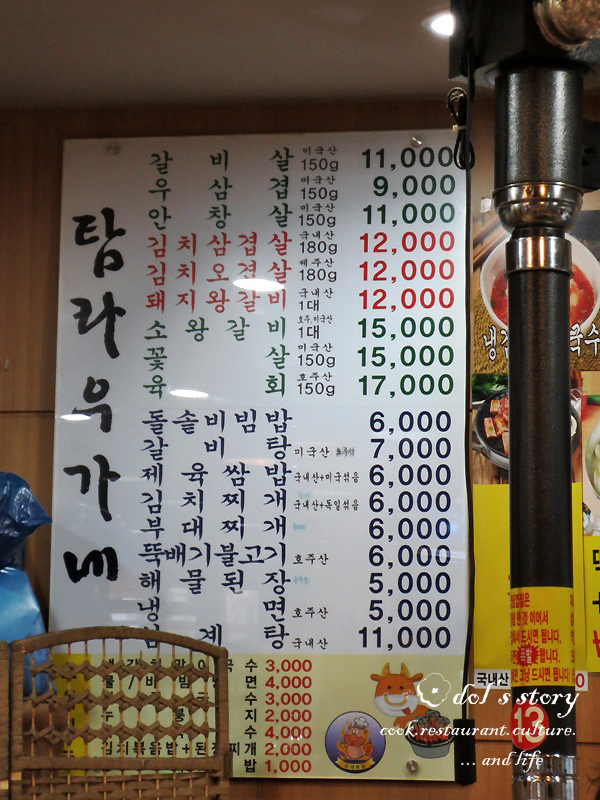 탐라우가네
갈비살 미국산 150g 11,000
우삼겹 미국산 150g 9,000
안창살 미국산 150g 11,000
김치삼겹살 국내산 180g 12,000
김치오겹살 제주산 180g 12,000
돼지왕갈비 국내산 1대 12,000
소왕갈비 호주,미국산 1대 15,000
꽃살 미국산 150g 15,000
육회 호주산 150g 17,000
돌솥비빔밥 6,000
갈비탕 미국산 7,000
제육쌈밥 국내산+미국섞음 6,000
김치찌개 국내산+독일섞음 6,000
부대찌개 6,000
뚝배기불고기 호주산 6,000
해물된장 5,000
냉면 호주산 5,000
계탕 국내산 11,000
수 3,000
면 4,000
수 3,000
지 2,000
수 4,000
김치볶음밥+된 찌개 2,000
밥 1,000
국수
국내산
13
dol's story
cook.restaurant.culture.
... and life